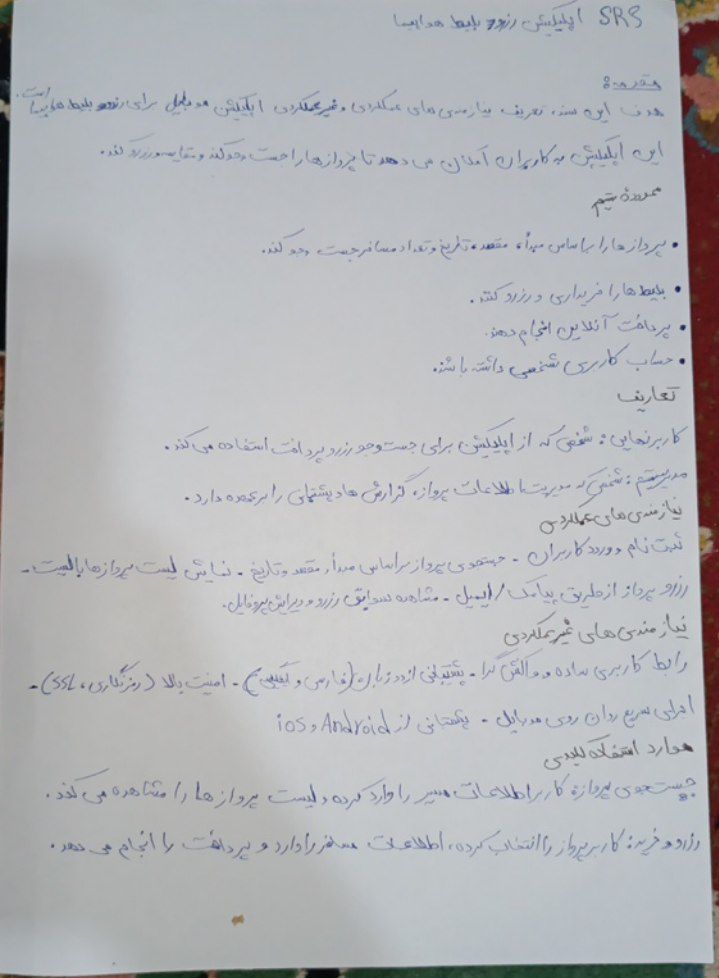 SRS اپلیکیشن رزرو بلیط هواپیما
مقدمه:
هدف این سند، تعریف نیازمندی های عملکردی و غیرعملکردی اپلیکیشن موبایل برای رزرو بلیط هواپیما است.
این اپلیکیشن به کاربران امکان می دهد تا پروازها را جست وجو کند و مقایسه و رزرو کند.
محدوده سیستم
• پروازها را براساس مبدأ، مقصد، تاریخ و تعداد مسافر جست وجو کند.
• بلیط ها را خریداری و رزرو کنند.
• پرداخت آنلاین انجام دهند.
• حساب کاربری شخصی داشته باشند.
تعاریف
کاربر نهایی: شخصی که از اپلیکیشن برای جست وجو رزرو پرداخت استفاده می کند.
مدیر سیستم: شخصی که مدیریت اطلاعات پرواز، گزارش ها و پشتیبانی را برعهده دارد.
نیازمندی های عملکردی
ثبت نام و ورود کاربران - جستجوی پرواز براساس مبدأ، مقصد و تاریخ - نمایش لیست پروازها با قیمت -
رزرو پرواز از طریق پیامک / ایمیل - مشاهده سوابق رزرو و ویرایش پروفایل.
نیازمندی های غیرعملکردی
رابط کاربری ساده و واکنش گرا - پشتیبانی از دو زبان (فارسی و انگلیسی) - امنیت بالا (رمزنگاری، SSL) -
اجرای سریع روان روی موبایل - پشتیبانی از Android و ios
موارد استفاده کلیدی
جستجوی پرواز: کاربر اطلاعات مسیر را وارد کرده و لیست پرواز ها را مشاهده می کند.
رزرو و خرید: کاربر پرواز را انتخاب کرده، اطلاعات مسافر را وارد و پرداخت را انجام می دهد.